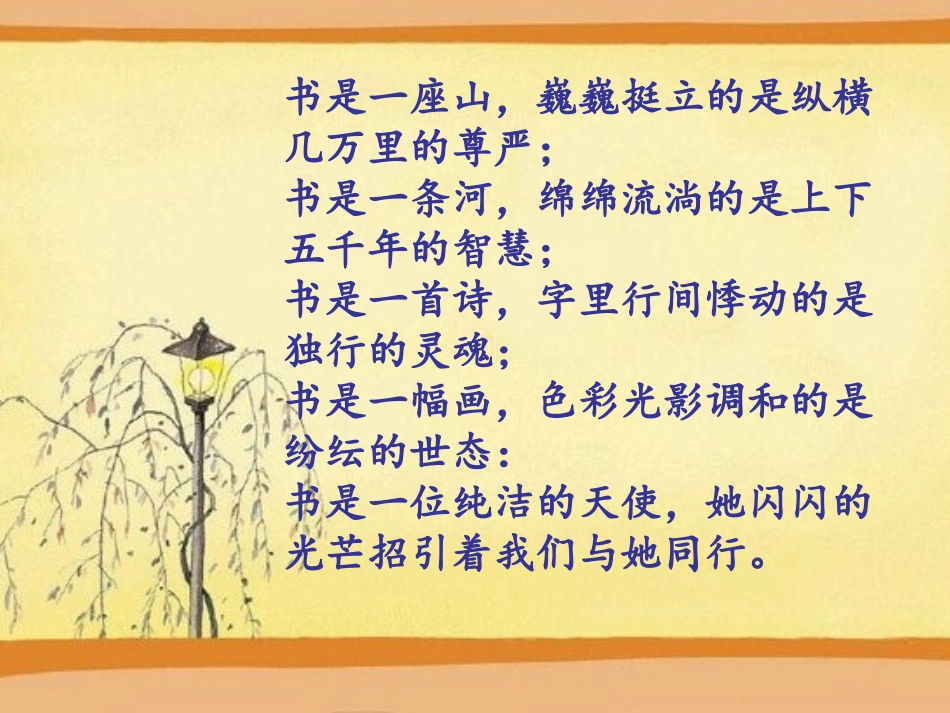 书是一座山，巍巍挺立的是纵横
几万里的尊严；
书是一条河，绵绵流淌的是上下
五千年的智慧；
书是一首诗，字里行间悸动的是
独行的灵魂；
书是一幅画，色彩光影调和的是
纷纭的世态：
书是一位纯洁的天使，她闪闪的
光芒招引着我们与她同行。